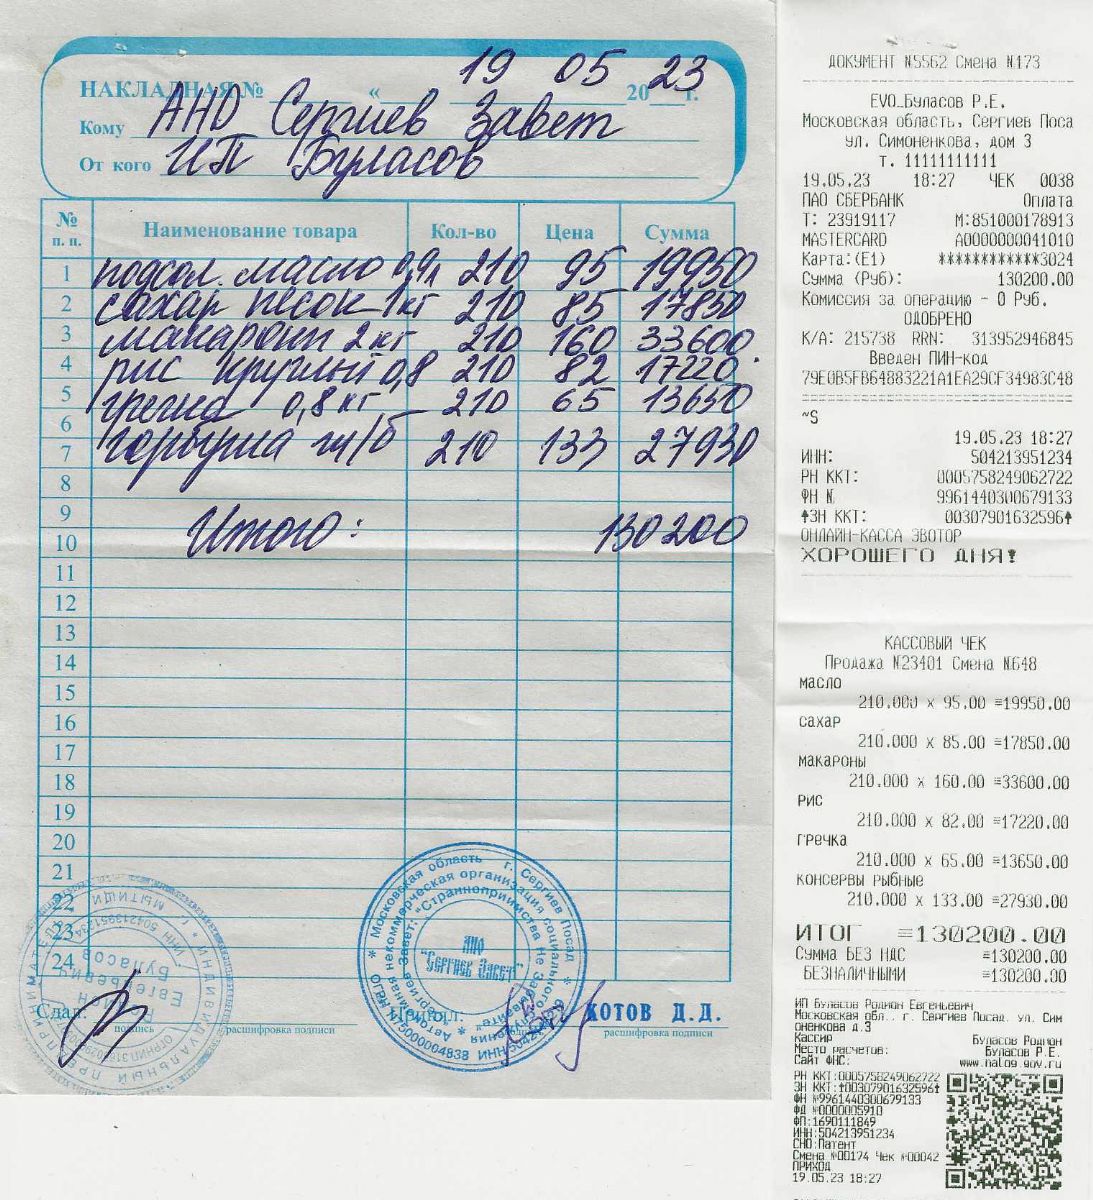 19 05 23
НАКЛАДНАЯ № « 20 г.
Кому АНО Сергиев Завет
От кого ИП Буласов
№ п. п. Наименование товара Кол-во Цена Сумма
1 подсол. масло 0,9л 210 95 19950
2 сахар песок 1кг 210 85 17850
3 макароны 2кг 210 160 33600
4 рис круглый 0,8 210 82 17220
5 гречка 0,8кг 210 65 13650
6
7 горбуша ж/б 210 133 27930
8
9
10 Итого: 130200
11
12
13
14
15
16
17
18
19
20
21
22
23
24
Сдал Принял: КОТОВ Д.Д.
подпись расшифровка подписи расшифровка подписи
Московская область г. Сергиев Посад
Автономная некоммерческая организация социального
"Сергиев Завет: "Странноприимства Не Забывайте"
АНО
"Сергиев Завет"
ИНДИВИДУАЛЬНЫЙ ПРЕДПРИНИМАТЕЛЬ
г. МЫТИЩИ
ИНН 504213951234
Буласов
Евгеньевич
ДОКУМЕНТ N5562 Смена N173
EVO_Буласов Р.Е.
Московская область, Сергиев Поса
ул. Симоненкова, дом 3
т. 11111111111
19.05.23 18:27 ЧЕК 0038
ПАО СБЕРБАНК Оплата
Т: 23919117 М:851000178913
MASTERCARD A0000000041010
Карта:(E1) ************3024
Сумма (Руб): 130200.00
Комиссия за операцию - 0 Руб.
ОДОБРЕНО
К/А: 215738 RRN: 313952946845
Введен ПИН-код
79E0B5FB64883221A1EA29CF34983C48
~S
19.05.23 18:27
ИНН: 504213951234
РН ККТ: 0005758249062722
ФН № 9961440300679133
↑ЗН ККТ: 00307901632596↑
ОНЛАЙН-КАССА ЭВОТОР
ХОРОШЕГО ДНЯ!
КАССОВЫЙ ЧЕК
Продажа N23401 Смена N648
масло
210.000 x 95.00 =19950.00
сахар
210.000 x 85.00 =17850.00
макароны
210.000 x 160.00 =33600.00
рис
210.000 x 82.00 =17220.00
гречка
210.000 x 65.00 =13650.00
консервы рыбные
210.000 x 133.00 =27930.00
ИТОГ =130200.00
Сумма БЕЗ НДС =130200.00
БЕЗНАЛИЧНЫМИ =130200.00
ИП Буласов Родион Евгеньевич
Московская обл., г. Сергиев Посад, ул. Сим
оненкова д.3
Кассир Буласов Родион
Место расчетов: Буласов Р.Е.
Сайт ФНС: www.nalog.gov.ru
РН ККТ:0005758249062722
ЗН ККТ:↑00307901632596↑
ФН №9961440300679133
ФД №0000005910
ФП:1690111849
ИНН:504213951234
СНО:Патент
Смена №00174 Чек №00042
ПРИХОД
19.05.23 18:27